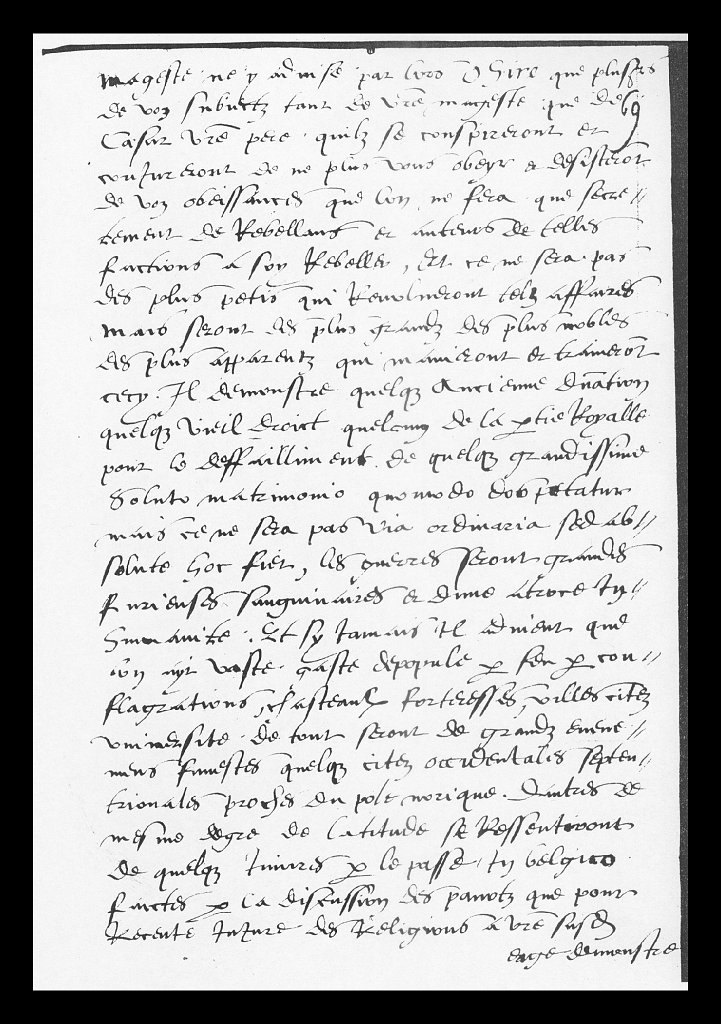 mageste ne y advise par lors O Sire que plusrs
de voz subiectz tant de vre mageste que de
69
Cæsar vre pere quilz se conspireront et
conjureront de ne plus vous obeyr & desisterot
de voz obeissances que lon ne fera que secre-
tement de Rebellans et auteurs de telles
factions a soy Rebeller, Et ce ne sera pas
des plus petis qui telz affaires
mais seront des plus grandz des plus nobles
des plus apparentz qui manieront et tramerot
cecy. Il demonstre quelq ancienne
quelq vieil droict quelcung de la ptie Royalle
pour le deffailliment de quelq grandissime
Soluto matrimonio quomodo dos petatur
mais ce ne sera pas via ordinaria sed ab-
solute hoc fiet, les guerres seront grandes
furieuses sanguinaires et dune atroce In-
humanite. Et sy Jamais Il advient que
lon ayt vaste gaste depopule p feu p con-
flagrations, chasteaulx forteresses, villes citez
universite de tout seront de grandz evene-
mens funestes quelq citez occidentales septen-
trionales proches du pole norique. Dautres de
mesme degre de latitude se Ressentiront
de quelq p le passe In belgico
factes p la discussion des que pour
Recente Injure des Religions a vre susd
eage demonstre